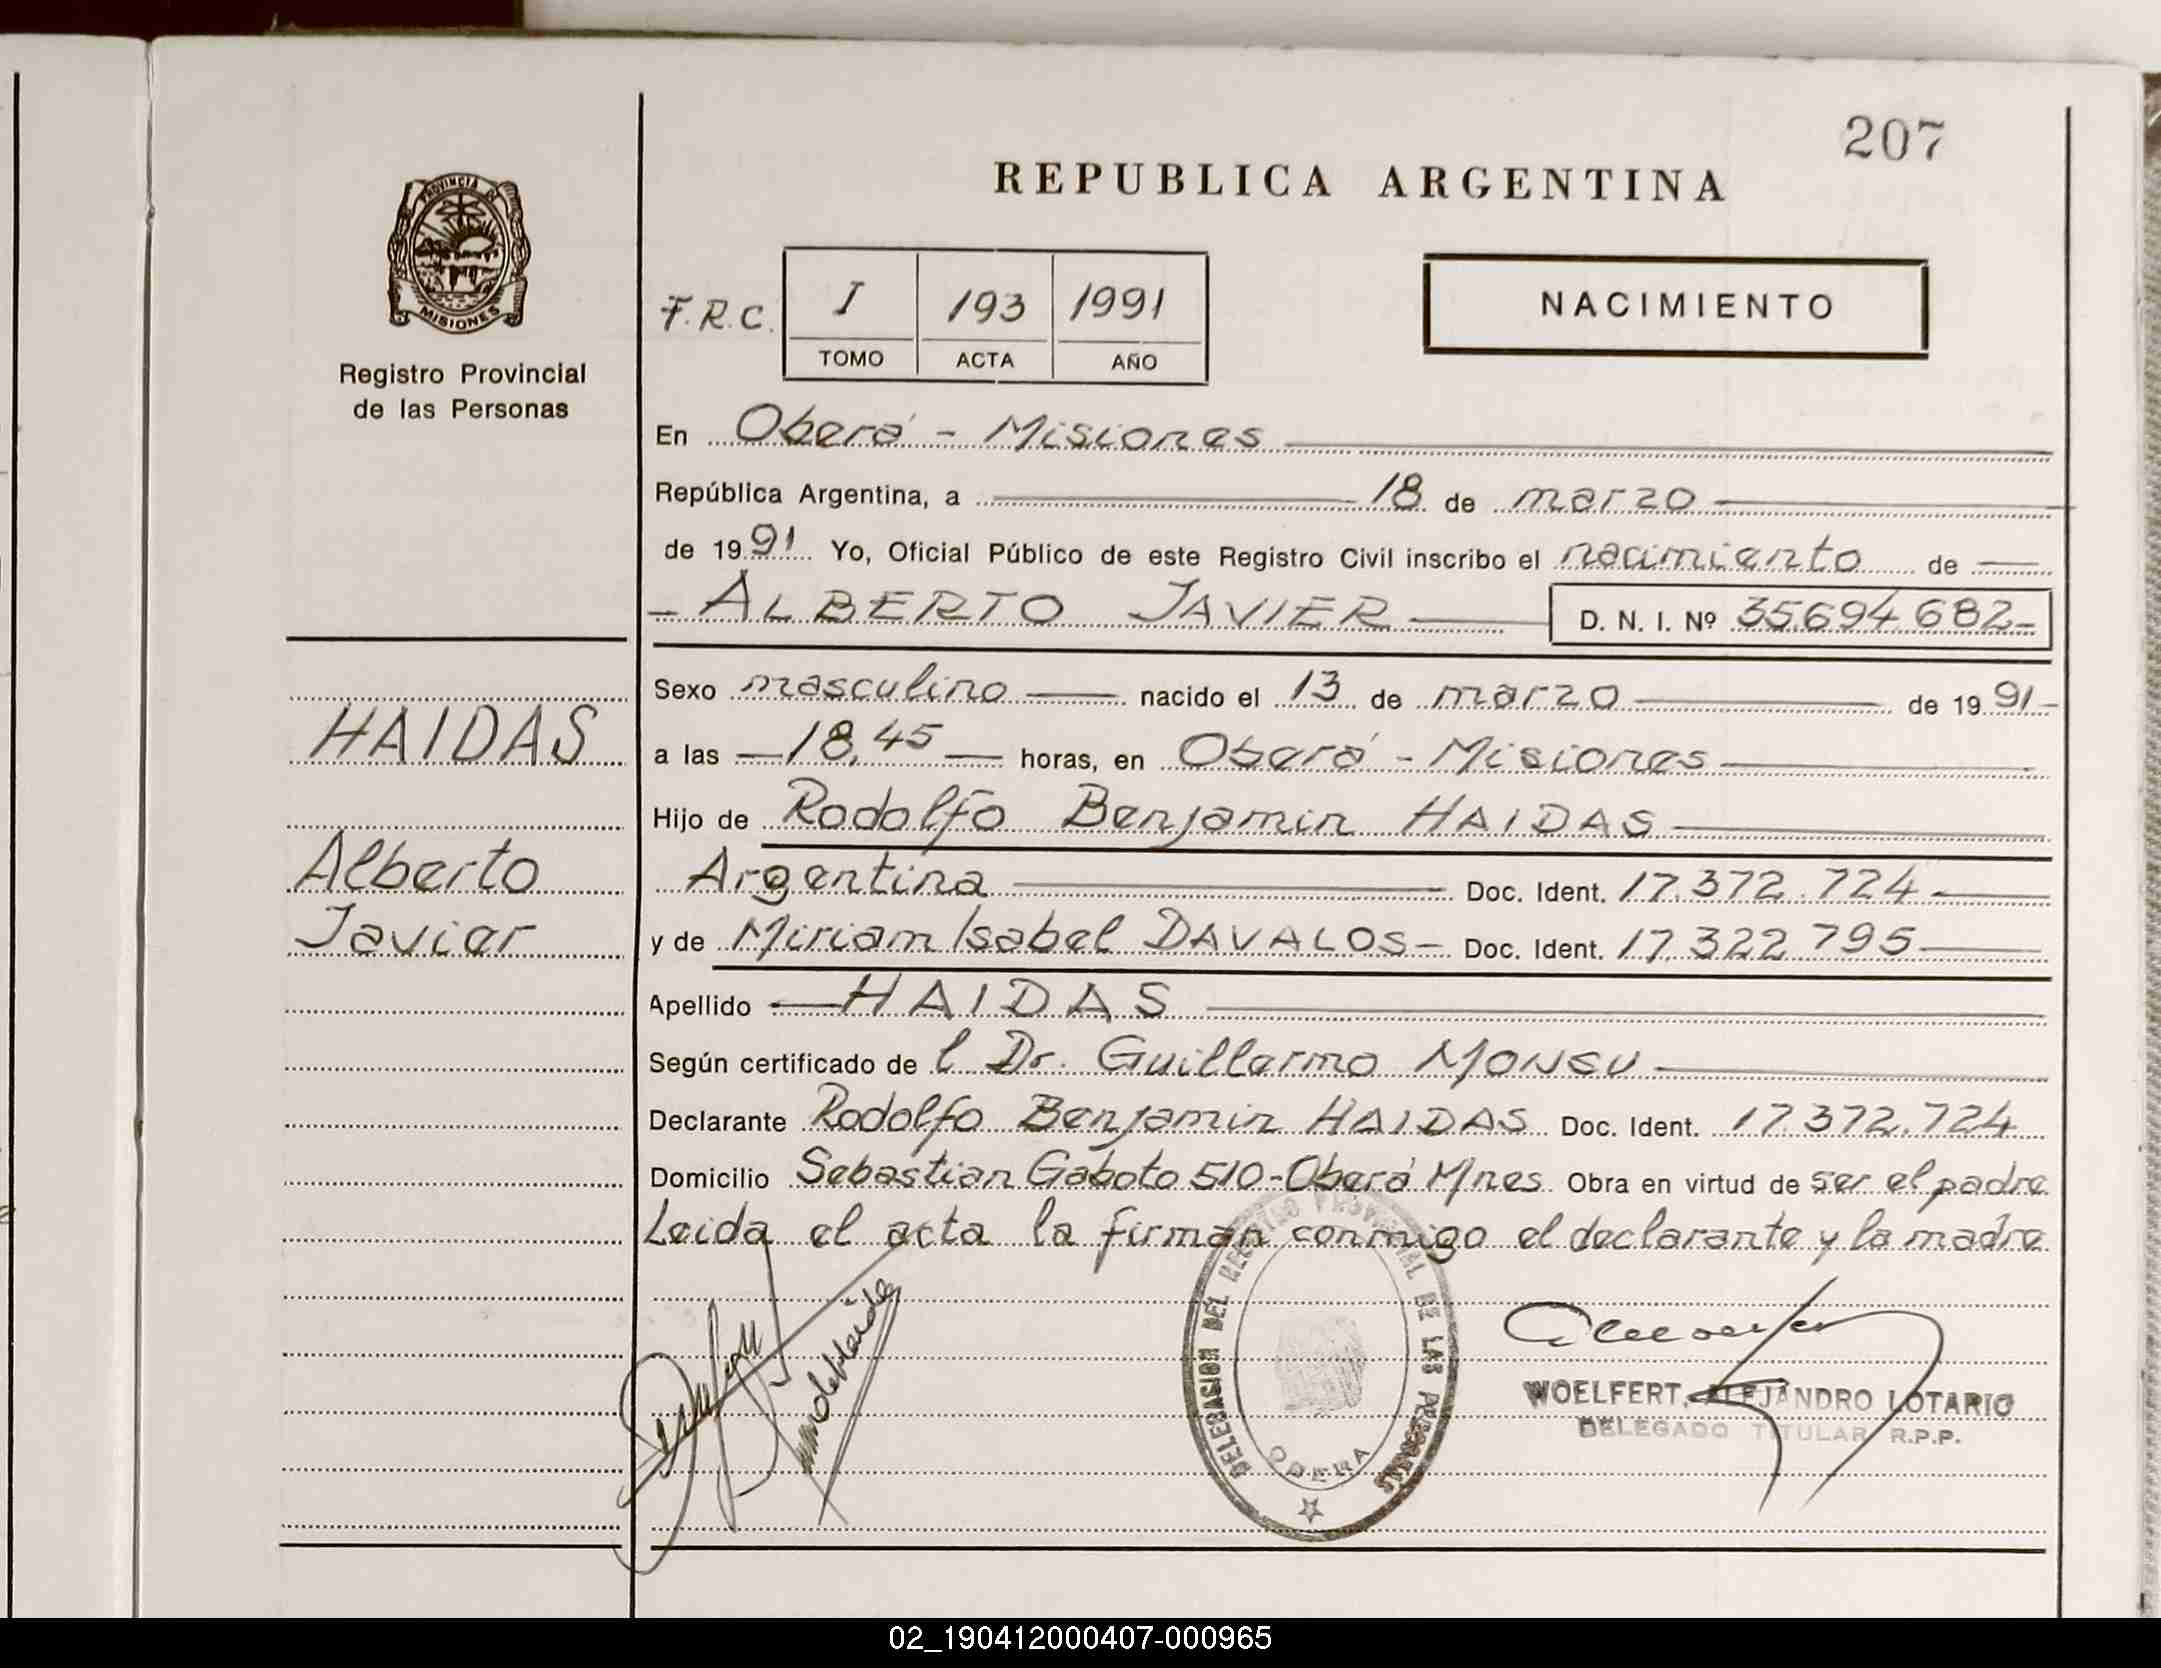 207
REPUBLICA ARGENTINA
PROVINCIA DE
MISIONES
Registro Provincial
de las Personas
F.R.C. I 193 1991
TOMO ACTA AÑO
NACIMIENTO
En Oberá - Misiones
República Argentina, a 18 de marzo
de 1991 Yo, Oficial Público de este Registro Civil inscribo el nacimiento de
- ALBERTO JAVIER D. N. I. Nº 35.694.682-
Sexo masculino nacido el 13 de marzo de 1991-
HAIDAS
a las 18,45 horas, en Oberá - Misiones
Hijo de Rodolfo Benjamin HAIDAS
Alberto
Argentina Doc. Ident. 17.372.724
Javier
y de Miriam Isabel DAVALOS- Doc. Ident. 17.322.795
Apellido HAIDAS
Según certificado de l Dr. Guillermo MONSU
Declarante Rodolfo Benjamin HAIDAS Doc. Ident. 17.372.724
Domicilio Sebastian Gaboto 510-Oberá Mnes Obra en virtud de ser el padre
Leida el acta la firman conmigo el declarante y la madre
DELEGASION DEL REGISTRO PROVINCIAL DE LAS PERSONAS
OBERA
WOELFERT, ALEJANDRO LOTARIO
DELEGADO TITULAR R.P.P.
02_190412000407-000965